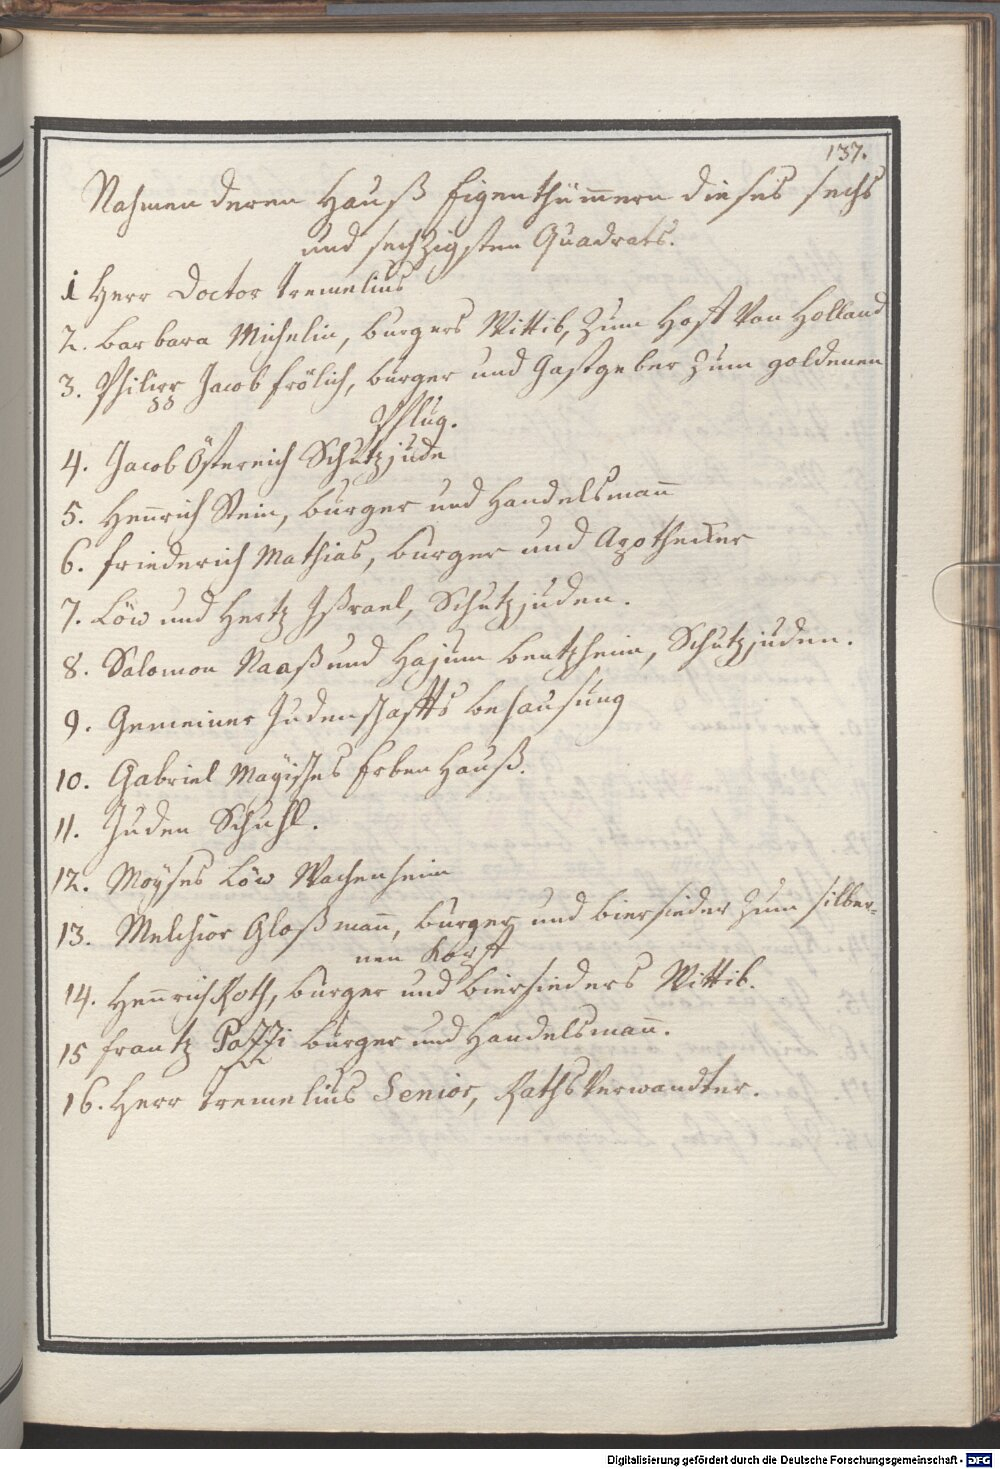 137.
Nahmen deren Hauß Eigenthümern dieses sechs
und sechzigsten Quadrats.
1 Herr Doctor Tremelius
2. Barbara Michelin, burgers Wittib, zum Hoff von Holland
3. Philipp Jacob Frölich, burger und Gastgeber zum goldenen
Pflug.
4. Jacob Östereich Schutzjude
5. Henrich Stein, burger und Handelsmann
6. Friederich Mathias, burger und Apothecker
7. Löw und Hertz Ißrael, Schutzjuden.
8. Salomon Naaß und Hajum Bentzheim, Schutzjuden.
9. Gemeiner Judenschaffts behausung
10. Gabriel Mayisches Erben Hauß.
11. Juden Schuhl.
12. Moyses Löw Wachenheim
13. Melchior Gloßmann, burger und biersieder zum silber-
nen Kopff
14. Henrich Roth, burger und biersieders Wittib.
15 Frantz Pozzi burger und Handelsmann.
16. Herr Tremelius Senior, RathsVerwandter.
Digitalisierung gefördert durch die Deutsche Forschungsgemeinschaft - DFG